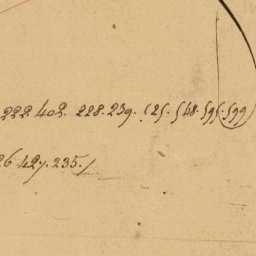 222 402. 228. 239. (25. 548. 595. 599)
26. 427. 235. /